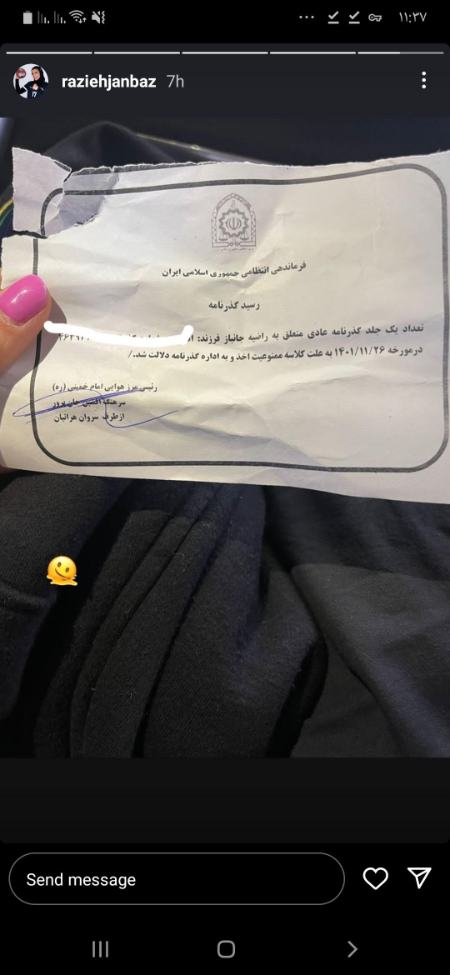 ۱۱:۳۷
raziehjanbaz 7h
فرماندهی انتظامی جمهوری اسلامی ایران
رسید گذرنامه
تعداد یک جلد گذرنامه عادی متعلق به راضیه جانباز فرزند:
درمورخه ۱۴۰۱/۱۱/۲۶ به علت کلاسه ممنوعیت اخذ و به اداره گذرنامه دلالت شد./
رئیس مرز هوایی امام خمینی (ره)
سرهنگ
ازطرف سروان هراتیان
Send message